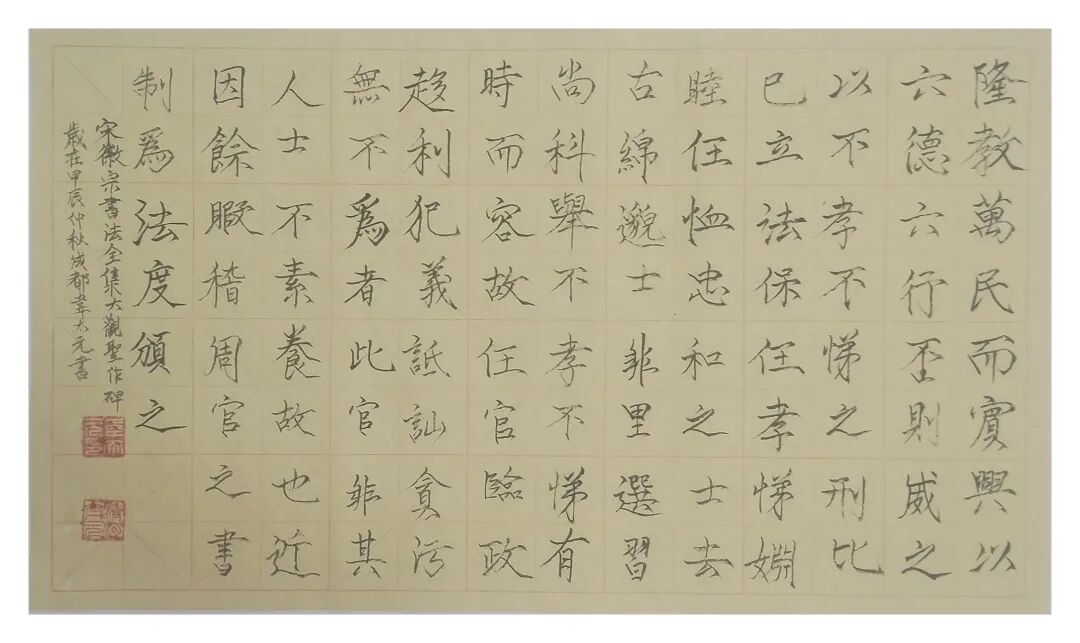 隆教萬民而賓興以
六德六行否則威之
以不孝不悌之刑比
已立法保任孝悌婣
睦任恤忠和之士去
古綿邈士非里選習
尚科舉不孝不悌有
時而容故任官臨政
趍利犯義詆訕貪污
無不爲者此官非其
人士不素養故也近
因餘暇稽周官之書
制爲法度頒之
宋徽宗書法全集大觀聖作碑
歲在甲辰仲秋成都韋大元書